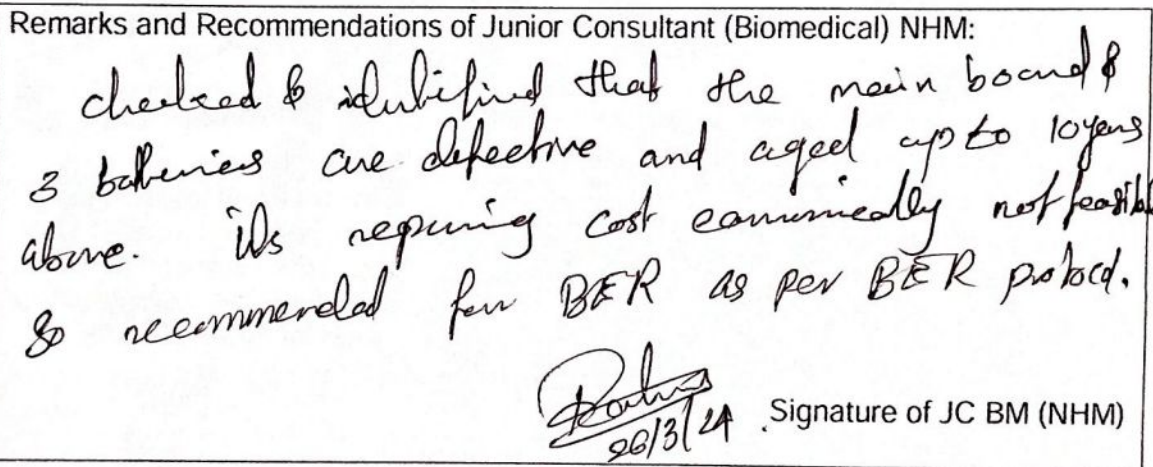 Remarks and Recommendations of Junior Consultant (Biomedical) NHM:
checked & identified that the main board &
3 batteries are defective and aged up to 10 years
above. its repairing cost economically not feasible
So recommended for BER as per BER protocol.
26/3/24
Signature of JC BM (NHM)